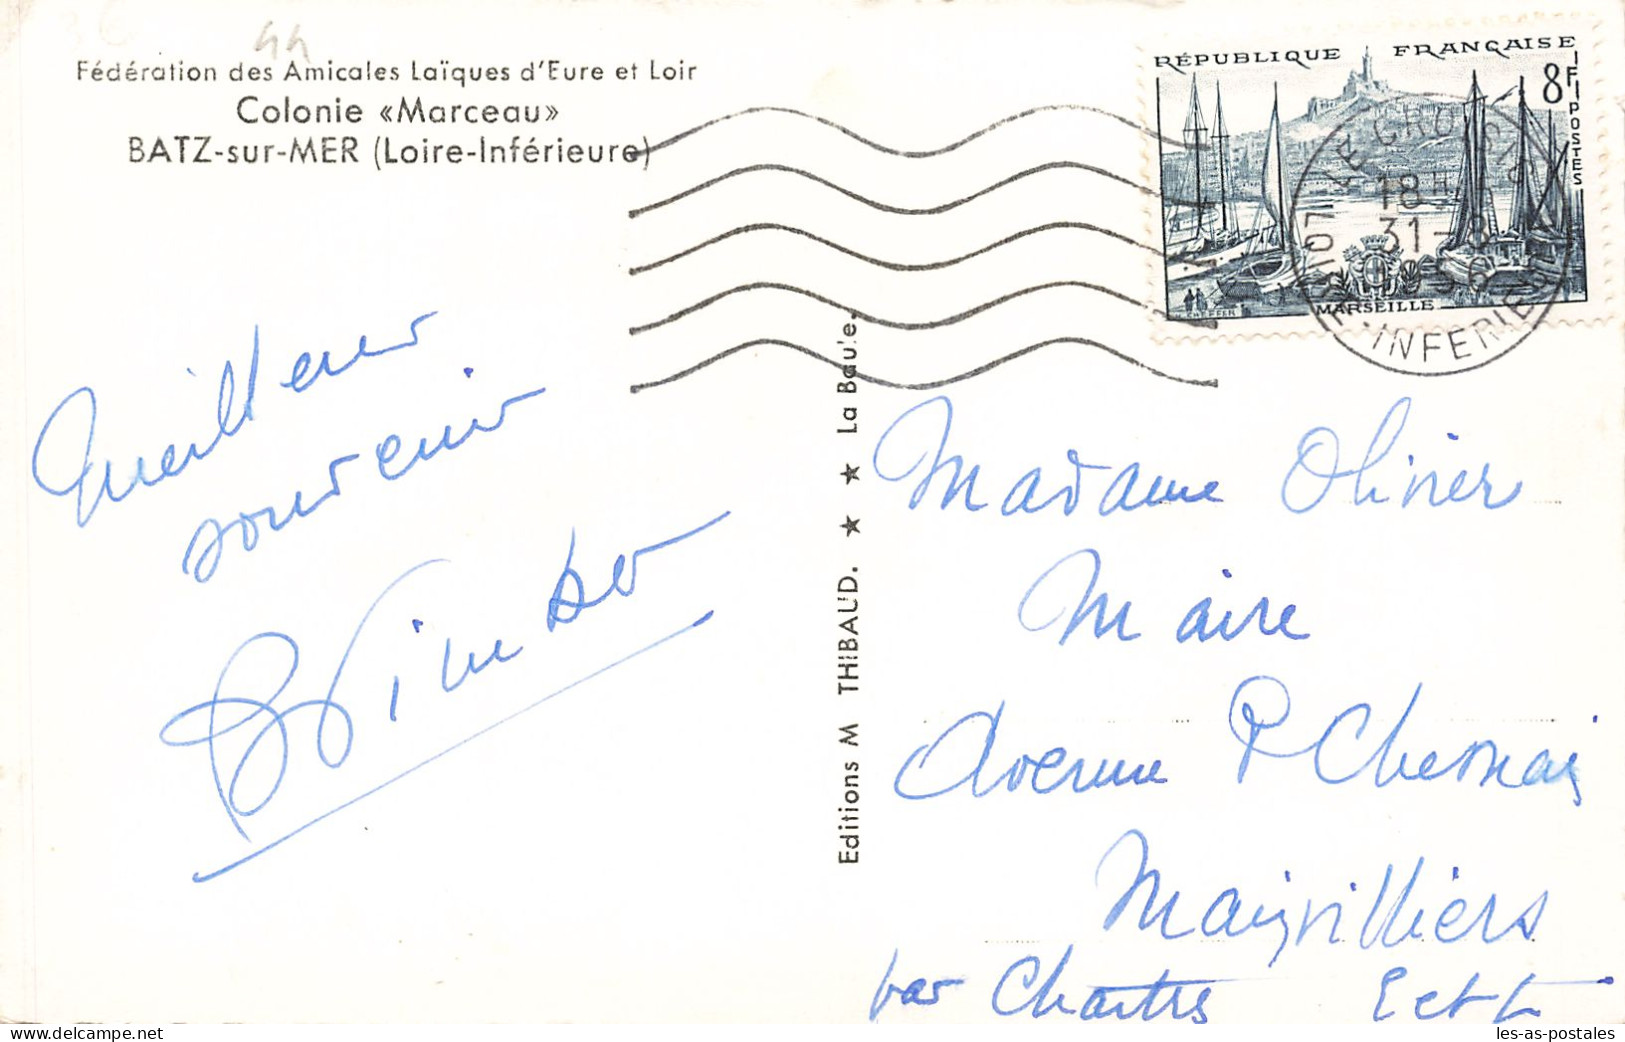 44
Fédération des Amicales Laïques d'Eure et Loir
Colonie «Marceau»
BATZ-sur-MER (Loire-Inférieure)
RÉPUBLIQUE FRANÇAISE
8F
POSTES
MARSEILLE
LE CROISIC
18H
31-8
1956
INFERIEURE
Meilleur
souvenir
Editions M THIBAUD. ★ ★ La Baule.
Madame Olivier
Maire
Avenue P Chesnay
Mainvilliers
par Chartres E et L
les-as-postales